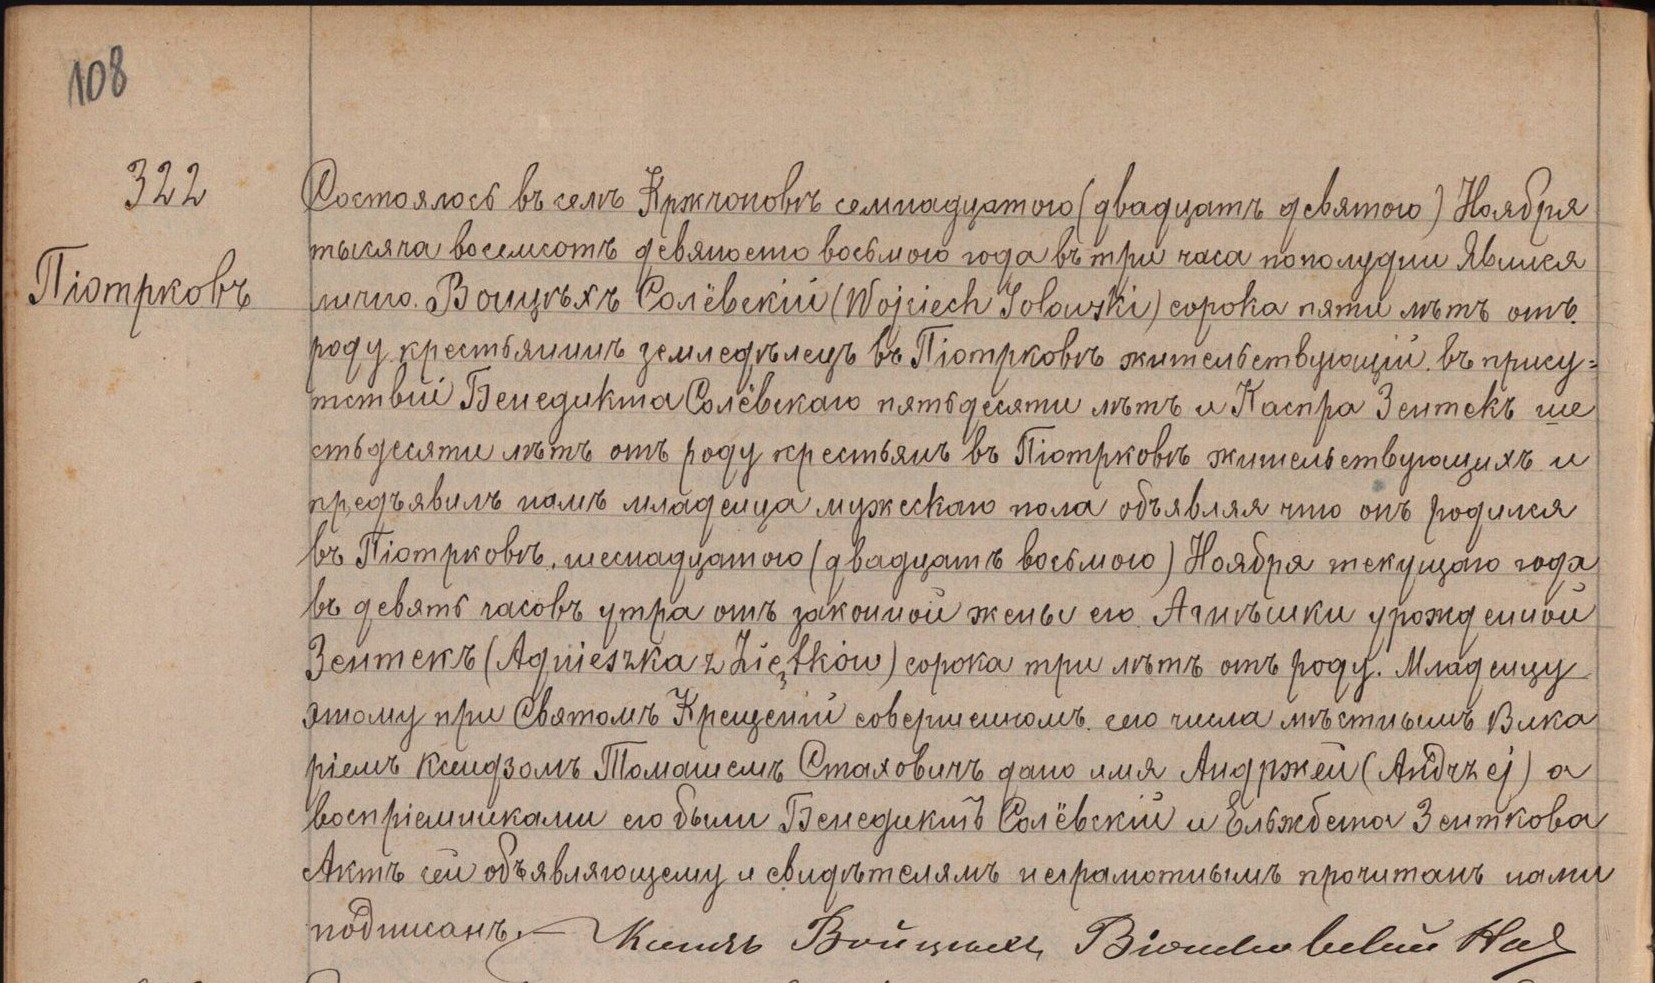 108
322
Піотрковъ
Состоялось въ селѣ Кржчоновѣ семнадцатого (двадцать девятого) Ноября
тысяча восемсотъ девяносто восьмого года въ три часа пополудни Явился
лично Войцѣхъ Солёвскій (Wojciech Solowski) сорока пяти лѣтъ отъ
роду крестьянинъ земледѣлецъ въ Піотрковѣ жительствующій въ прису=
тствіи Бенедикта Солёвскаго пятьдесяти лѣтъ и Каспра Зентекъ ше
стьдесяти лѣтъ отъ роду крестьянъ въ Піотрковѣ жительствующихъ и
предъявилъ намъ младенца мужескаго пола объявляя что онъ родился
въ Піотрковѣ, шеснадцатого (двадцать восьмого) Ноября текущаго года
въ девять часовъ утра отъ законной жены его Агнѣшки урожденной
Зентекъ (Agnieszka z Ziętków) сорока три лѣтъ отъ роду. Младенцу
этому при Святомъ Крещеніи совершенномъ сего числа мѣстнымъ Вика
ріемъ Ксендзомъ Томашемъ Стаховичъ дано имя Андржей (Andrzej) а
воспріемниками его были Бенедиктъ Солёвскій и Ельжбета Зенткова
Актъ сей объявляющему и свидѣтелямъ неграмотнымъ прочитанъ нами
подписанъ. Войцѣхъ